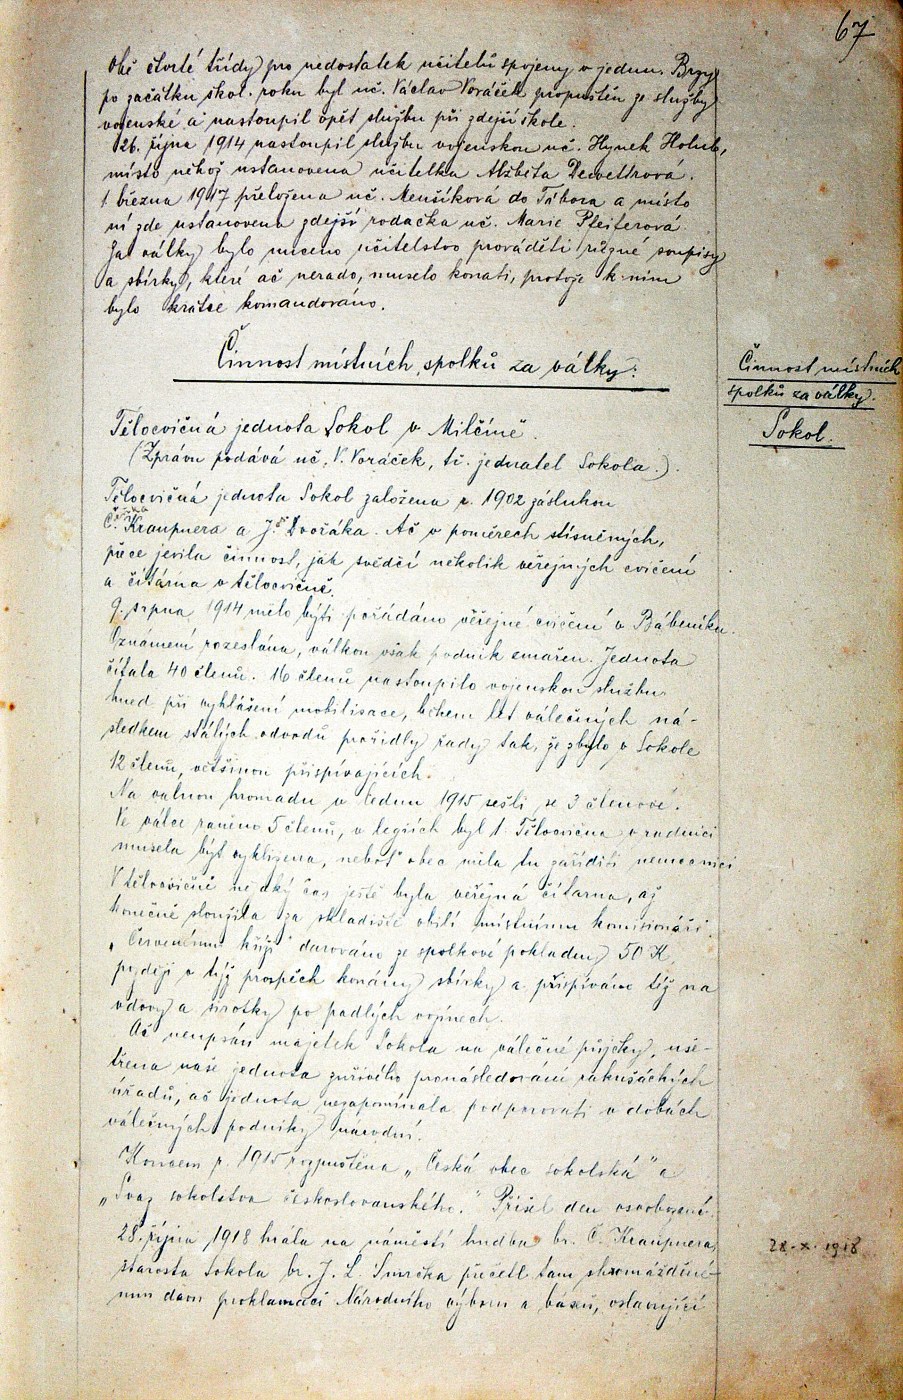 67
Obě čtvrté třídy pro nedostatek učitelů spojeny v jednu. Brzy
po začátku škol. roku byl uč. Václav Voráček propuštěn ze služby
vojenské a nastoupil opět službu při zdejší škole.
26. října 1914 nastoupil službu vojenskou uč. Hynek Holub,
místo něhož ustanovena učitelka Alžběta Dewettrová.
1. března 1917 přeložena uč. Menšíková do Tábora a místo
ní zde ustanovena zdejší rodačka uč. Marie Pfeiferová.
Za války bylo nuceno učitelstvo prováděti různé soupisy
a sbírky, které ač nerado, muselo konati, protože k nim
bylo krátce komandováno.
Činnost místních spolků za války.
Činnost místních
spolků za války.
Sokol.
Tělocvičná jednota Sokol v Milčíně.
(Zprávu podává uč. V. Voráček, tč. jednatel Sokola.).
Tělocvičná jednota Sokol založena r. 1902 zásluhou
Č. Kraupnera a J. Dvořáka. Ač v poměrech stísněných,
přece jevila činnost, jak svědčí několik veřejných cvičení
a čítárna v tělocvičně.
9. srpna 1914 mělo býti pořádáno veřejné cvičení v Bábeníku.
Oznámení rozeslána, válkou však podnik zmařen. Jednota
čítala 40 členů. 16 členů nastoupilo vojenskou službu
hned při vyhlášení mobilisace, během let válečných ná-
sledkem stálých odvodů prořidly řady tak, že zbylo v Sokole
12 členů, většinou přispívajících.
Na valnou hromadu v lednu 1915 sešli se 3 členové.
Ve válce raněno 5 členů, v legiích byl 1. Tělocvična v radnici
musela být vyklizena, neboť obec měla tu zaříditi nemocnici.
V tělocvičně nějaký čas ještě byla veřejná čítárna, až
konečně sloužila za skladiště obilí místnímu komisionáři.
„Červenému kříži" darováno ze spolkové pokladny 50 K,
později v týž prospěch konány sbírky a přispíváno též na
vdovy a sirotky po padlých vojínech.
Ač neupsán majetek Sokola na válečné půjčky, uše-
třena naše jednota zuřivého pronásledování rakušáckých
úřadů, ač jednota nezapomínala podporovati v dobách
válečných podniky národní.
Koncem r. 1915 rozpuštěna „Česká obec sokolská" a
„Svaz sokolstva československého." Přišel den osvobození.
28. října 1918 hrála na náměstí hudba br. Č. Kraupnera,
28.-X.-1918
starosta Sokola br. J. L. Smrčka přečetl tam shromážděné-
mu davu proklamaci Národního výboru a báseň, oslavující